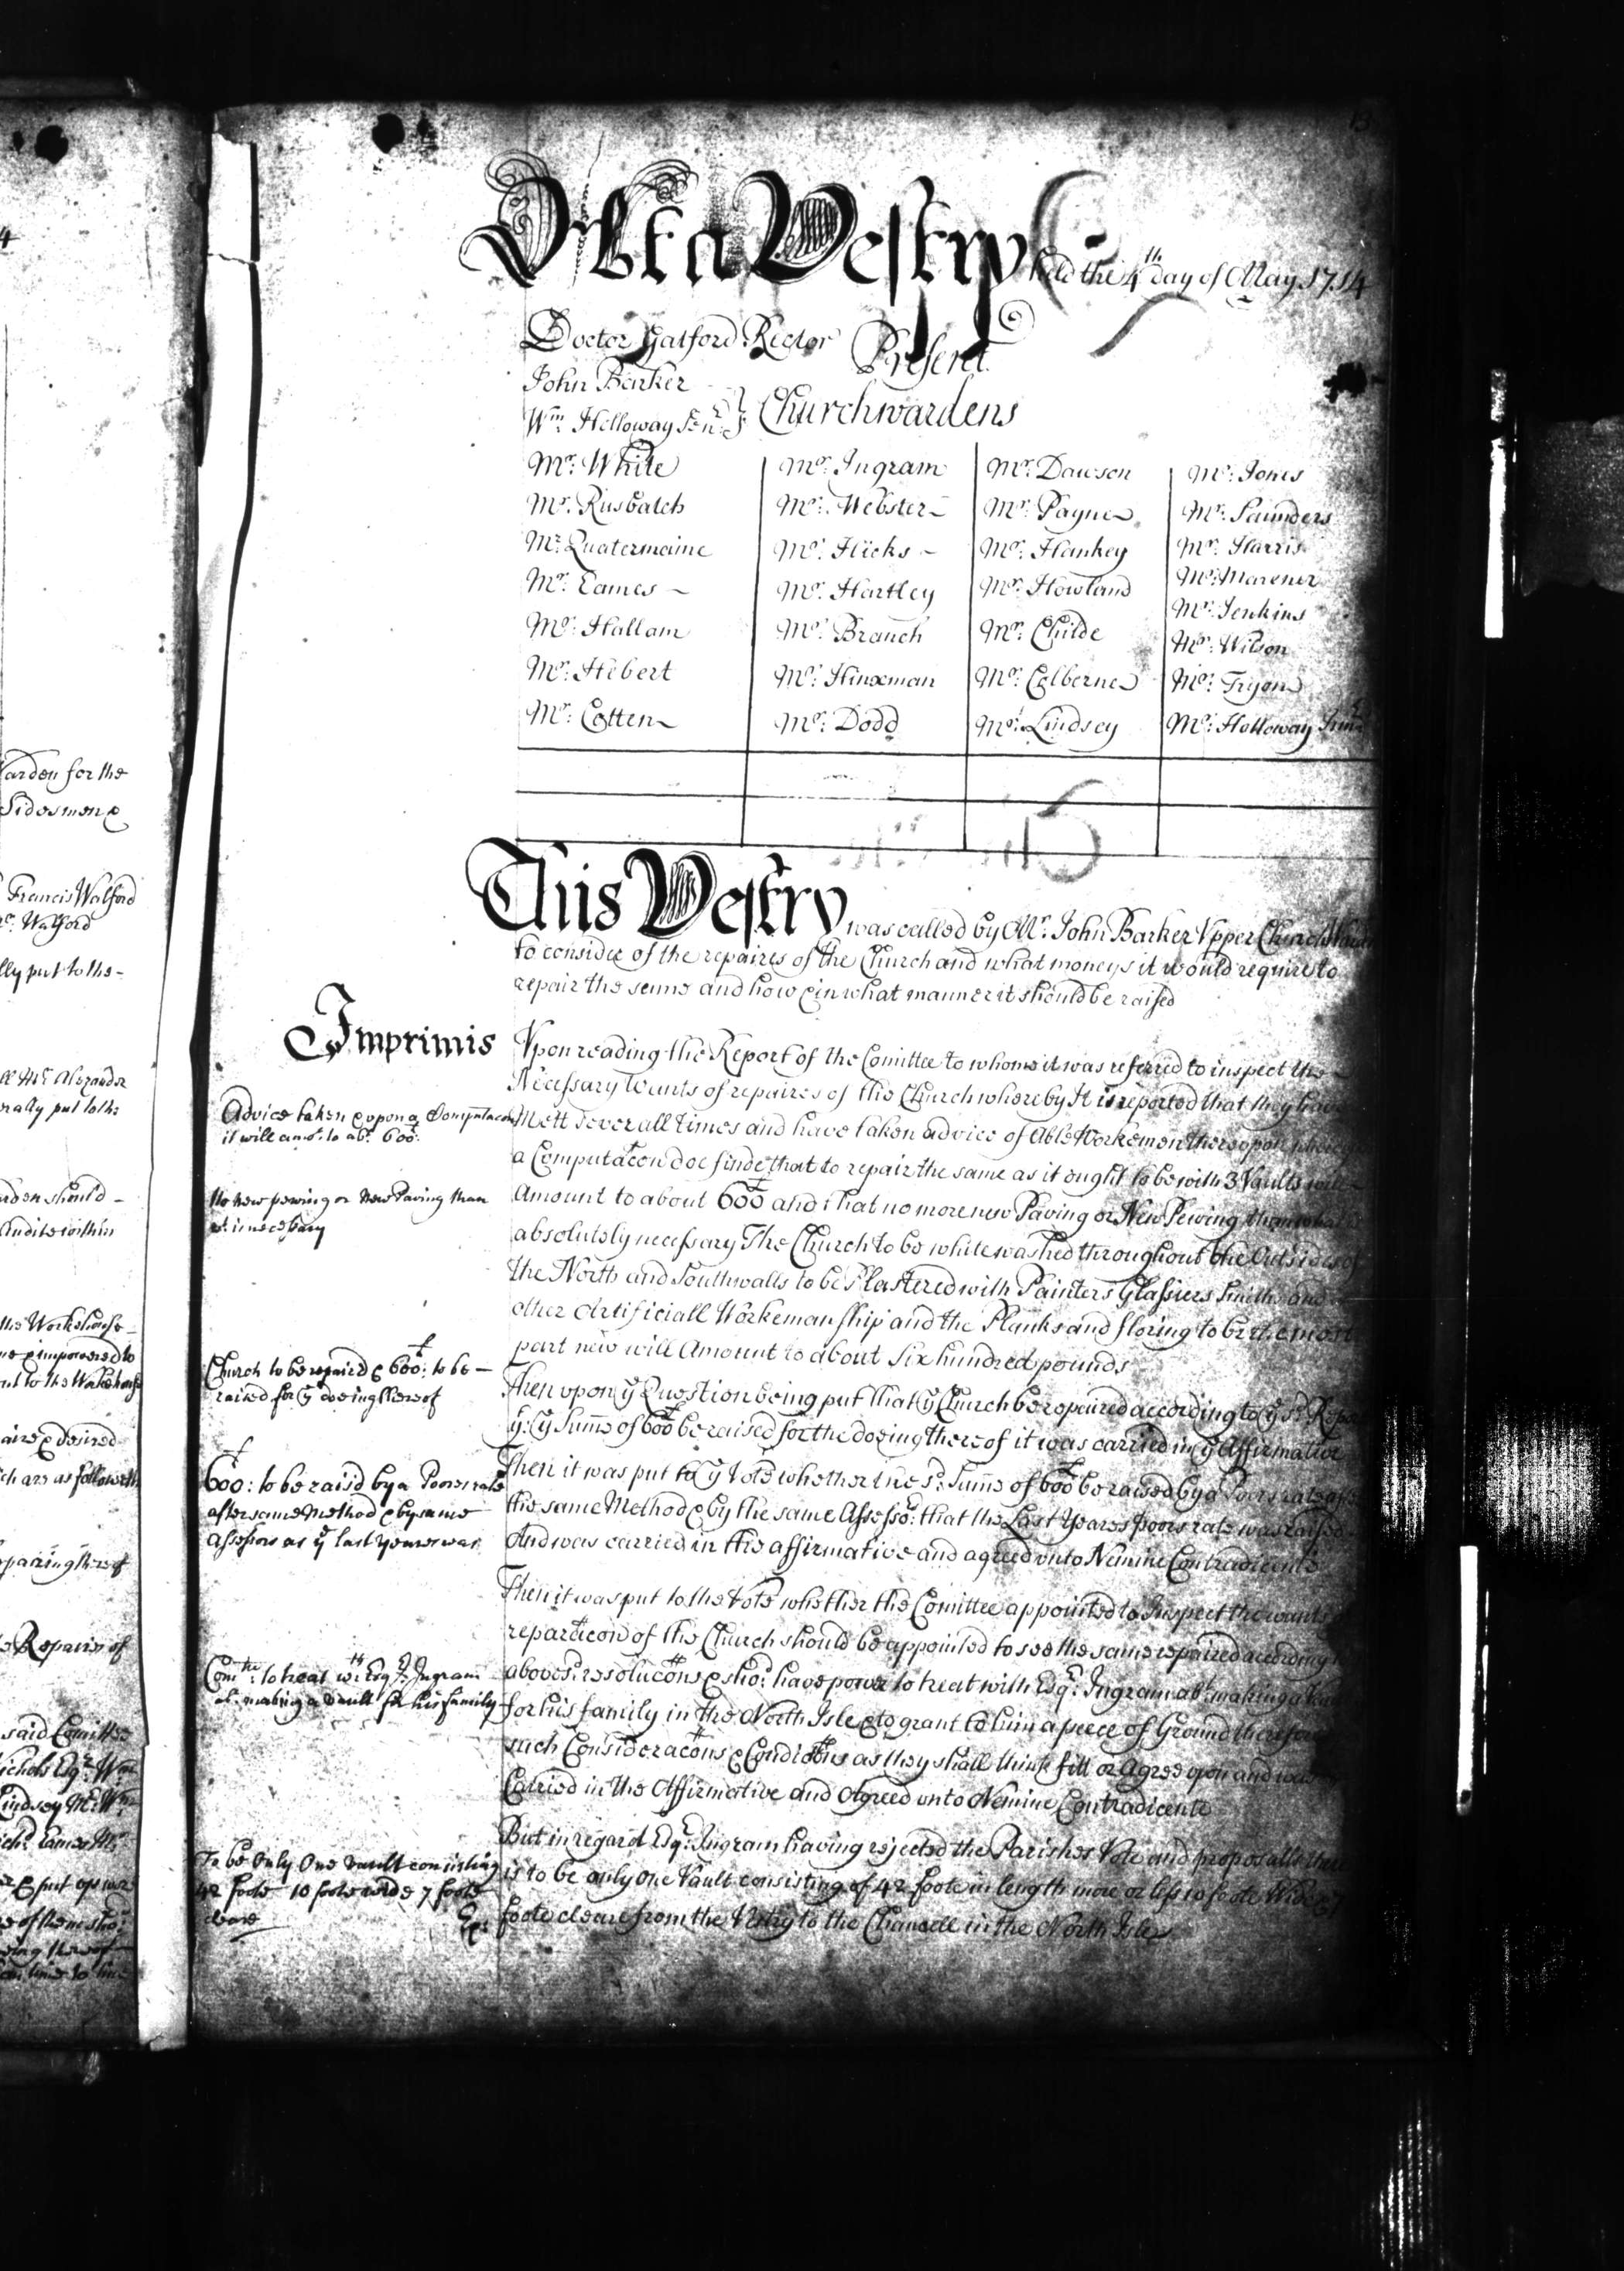 13
Att a Vestry held the 4th day of May 1714
Doctor Gatford Rector Present
John Barker
Wm. Holloway Senr. } Churchwardens
Mr. White Mr. Ingram Mr. Dawson Mr. Jones
Mr. Rusbatch Mr. Webster Mr. Payne Mr. Saunders
Mr. Quatermaine Mr. Hicks Mr. Hankey Mr. Harris
Mr. Eames Mr. Hartley Mr. Howland Mr. Marener
Mr. Jenkins
Mr. Hallam Mr. Branch Mr. Childe Mr. Wilson
Mr. Hibert Mr. Hinxman Mr. Colborne Mr. Tryon
Mr. Cotten Mr. Dodd Mr. Lindsey Mr. Holloway Junr
This Vestry was called by Mr. John Barker Vpper Church
to consider of the repaires of the Church and what moneys it would require to
repair the same and how & in what manner it should be raised
Imprimis
Vpon reading the Report of the Comittee to whome it was referred to inspect the
Necessary wants of repaires of the Church whereby It is reported that they have
Mett severall times and have taken advice of Able Workemen thereupon
a Computacon doe finde that to repair the same as it ought to be with 3 Vaults will
Amount to about 600£ and that no more new Paving or New Pewing than
absolutely necessary The Church to be white washed throughout the Outsides of
the North and South walls to be Plastered with Painters Glasiers Smiths and
other Artificiall Workemanship and the Planks and floring to be the most
part new will Amount to about Six hundred pounds
Then upon ye Question being put that ye Church be repaired according to ye sd. Rep
ye Summe of 600£ be raised for the doeing thereof it was carried in ye Affirmative
Then it was put to ye Vote whether the sd. Summe of 600£ be raised by a Poors rate
the same Method & by the same Assessors that the Last Yeares Poors rate was raised
And was carried in the affirmative and agreed vnto Nemine Contradicente
Then it was put to the Vote whether the Comittee appointed to Inspect the wants of
reparacon of the Church should be appointed to see the same repaired according to
abovesd. resolucons & shod. have power to treat with Esqr. Ingram abt. making a
for his family in the North Isle & to grant to him a peece of Ground therefore
such Consideracons & Condicons as they shall think fitt or agree upon and was
Carried in the Affirmative and Agreed vnto Nemine Contradicente
But in regard Esqr. Ingram having rejected the Parishes Vote and proposalls
is to be only one Vault consisting of 42 foote in length more or less 10 foote Wide & 7
foote cleare from the Vestry to the Chancell in the North Isle
Advice taken & upon a Computacon
it will amot. to abt. 600£
No new pewing or New Paving than
is necessary
Church to be repaired & 600£: to be
raised for ye doeing thereof
600£: to be raisd by a Poors rate
after same Method & by same
Assessors as ye last yeares was
Comtee. to treat wth. Esqr. Ingram
abt. making a Vault for his family
To be Only One Vault consisting
42 foote 10 foote wide 7 foote
cleare
4
arden for the
Sidesmen &
Francis Walford
Walford
lly put to the
ll Mr Alexander
erally put to the
rden should
Audite within
the Workehouse
me & impowered to
nt to the Workehouse
aire & desired
ch are as followeth
epairing thereof
Repaires of
said Comittee
Nichols Esqr.
Lindsey Mr. Wm